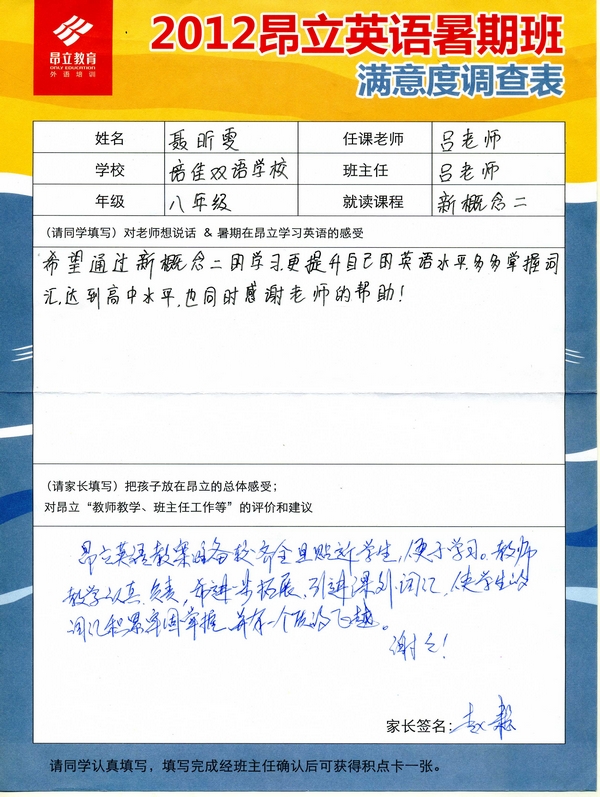 昂立教育
ONLY EDUCATION
外语培训
2012昂立英语暑期班
满意度调查表
姓名 聂昕雯 任课老师 吕老师
学校 培佳双语学校 班主任 吕老师
年级 八年级 就读课程 新概念二
(请同学填写) 对老师想说话 & 暑期在昂立学习英语的感受
希望通过新概念二的学习,更提升自己的英语水平,多多掌握词
汇,达到高中水平,也同时感谢老师的帮助!
(请家长填写) 把孩子放在昂立的总体感受;
对昂立“教师教学、班主任工作等”的评价和建议
昂立英语教案准备较齐全且贴近学生,便于学习。教师
教学认真、负责,希进一步拓展,引进课外词汇,使学生的
词汇积累牢固掌握,并有一个质的飞越。
谢谢!
家长签名: 赵
请同学认真填写,填写完成经班主任确认后可获得积点卡一张。